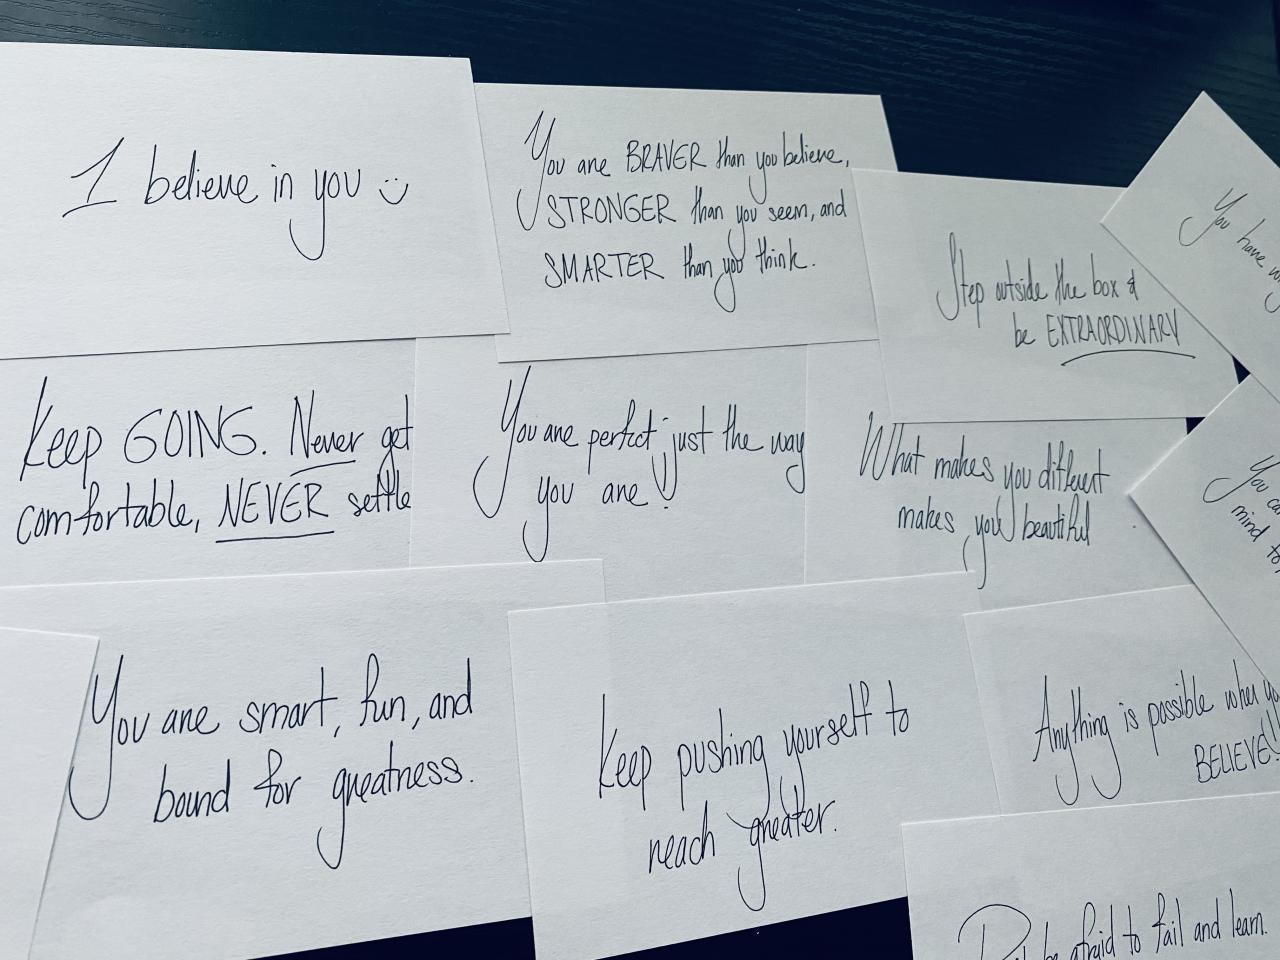 I believe in you
You are BRAVER than you believe,
STRONGER than you seem, and
SMARTER than you think.
Step outside the box &
be EXTRAORDINARY
You have
Keep GOING. Never get
comfortable, NEVER settle
You are perfect just the way
you are!
What makes you different
makes you beautiful
You
mind
You are smart, fun, and
bound for greatness.
Keep pushing yourself to
reach greater.
Anything is possible when
BELIEVE!!
be afraid to fail and learn.